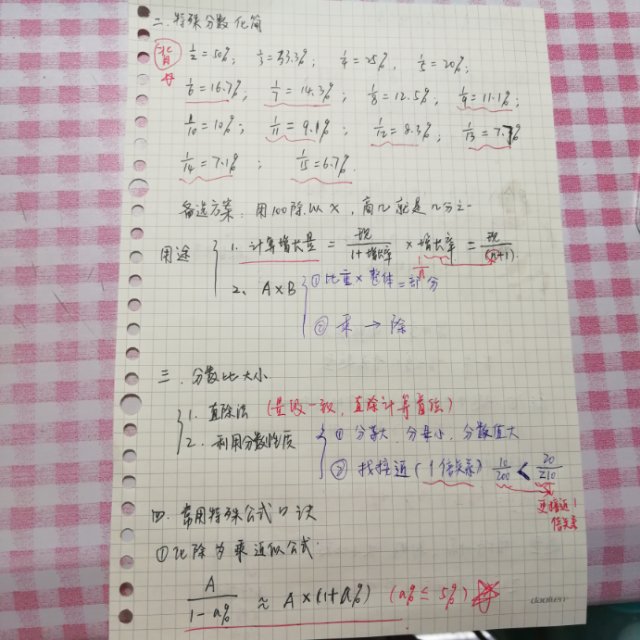 二、特殊分数化简
背 1/2=50%, 1/3=33.3%; 1/4=25%, 1/5=20%;
1/6=16.7%; 1/7=14.3%; 1/8=12.5%; 1/9=11.1%;
1/10=10%; 1/11=9.1%; 1/12=8.3%; 1/13=7.7%
1/14=7.1%; 1/15=6.7%.
备选方案:用100除以X,商几就是几分之一
用途 1. 计算增长量=现/(1+增长率)×增长率=现/(n+1)
1/n
2、A×B ①比重×整体=部分
②乘→除
三、分数比大小
1. 直除法 (量级一致,直除计算首位)
2. 利用分数性质 ①分子大,分母小,分数值大
②找接近(1倍关系) 10/200<20/210
更接近1
倍关系
四、常用特殊公式口诀
①化除为乘近似公式:
A/(1-a%)≈A×(1+a%) (a%≤5%)